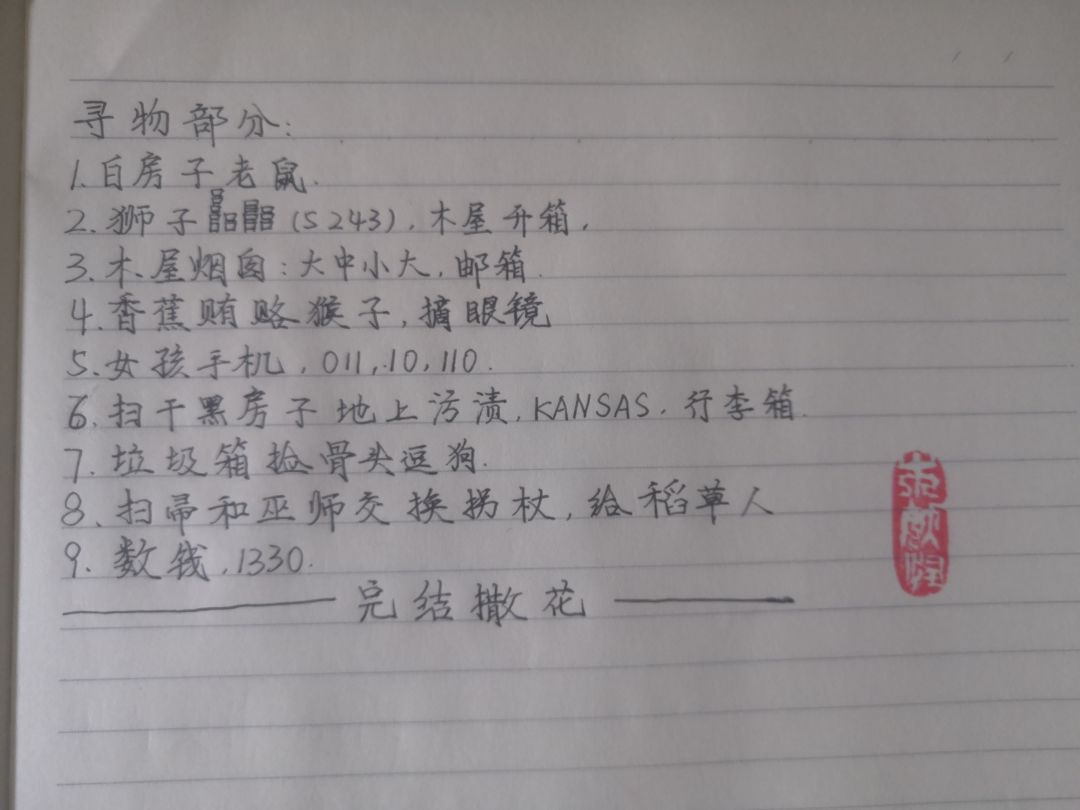 寻物部分：
1.白房子老鼠.
2.狮子(5243),木屋开箱,
3.木屋烟囱：大中小大,邮箱.
4.香蕉贿赂猴子,摘眼镜
5.女孩手机,011,10,110.
6.扫干黑房子地上污渍,KANSAS.行李箱.
7.垃圾箱捡骨头逗狗.
8.扫帚和巫师交换拐杖,给稻草人
9.数钱,1330.
完结撒花